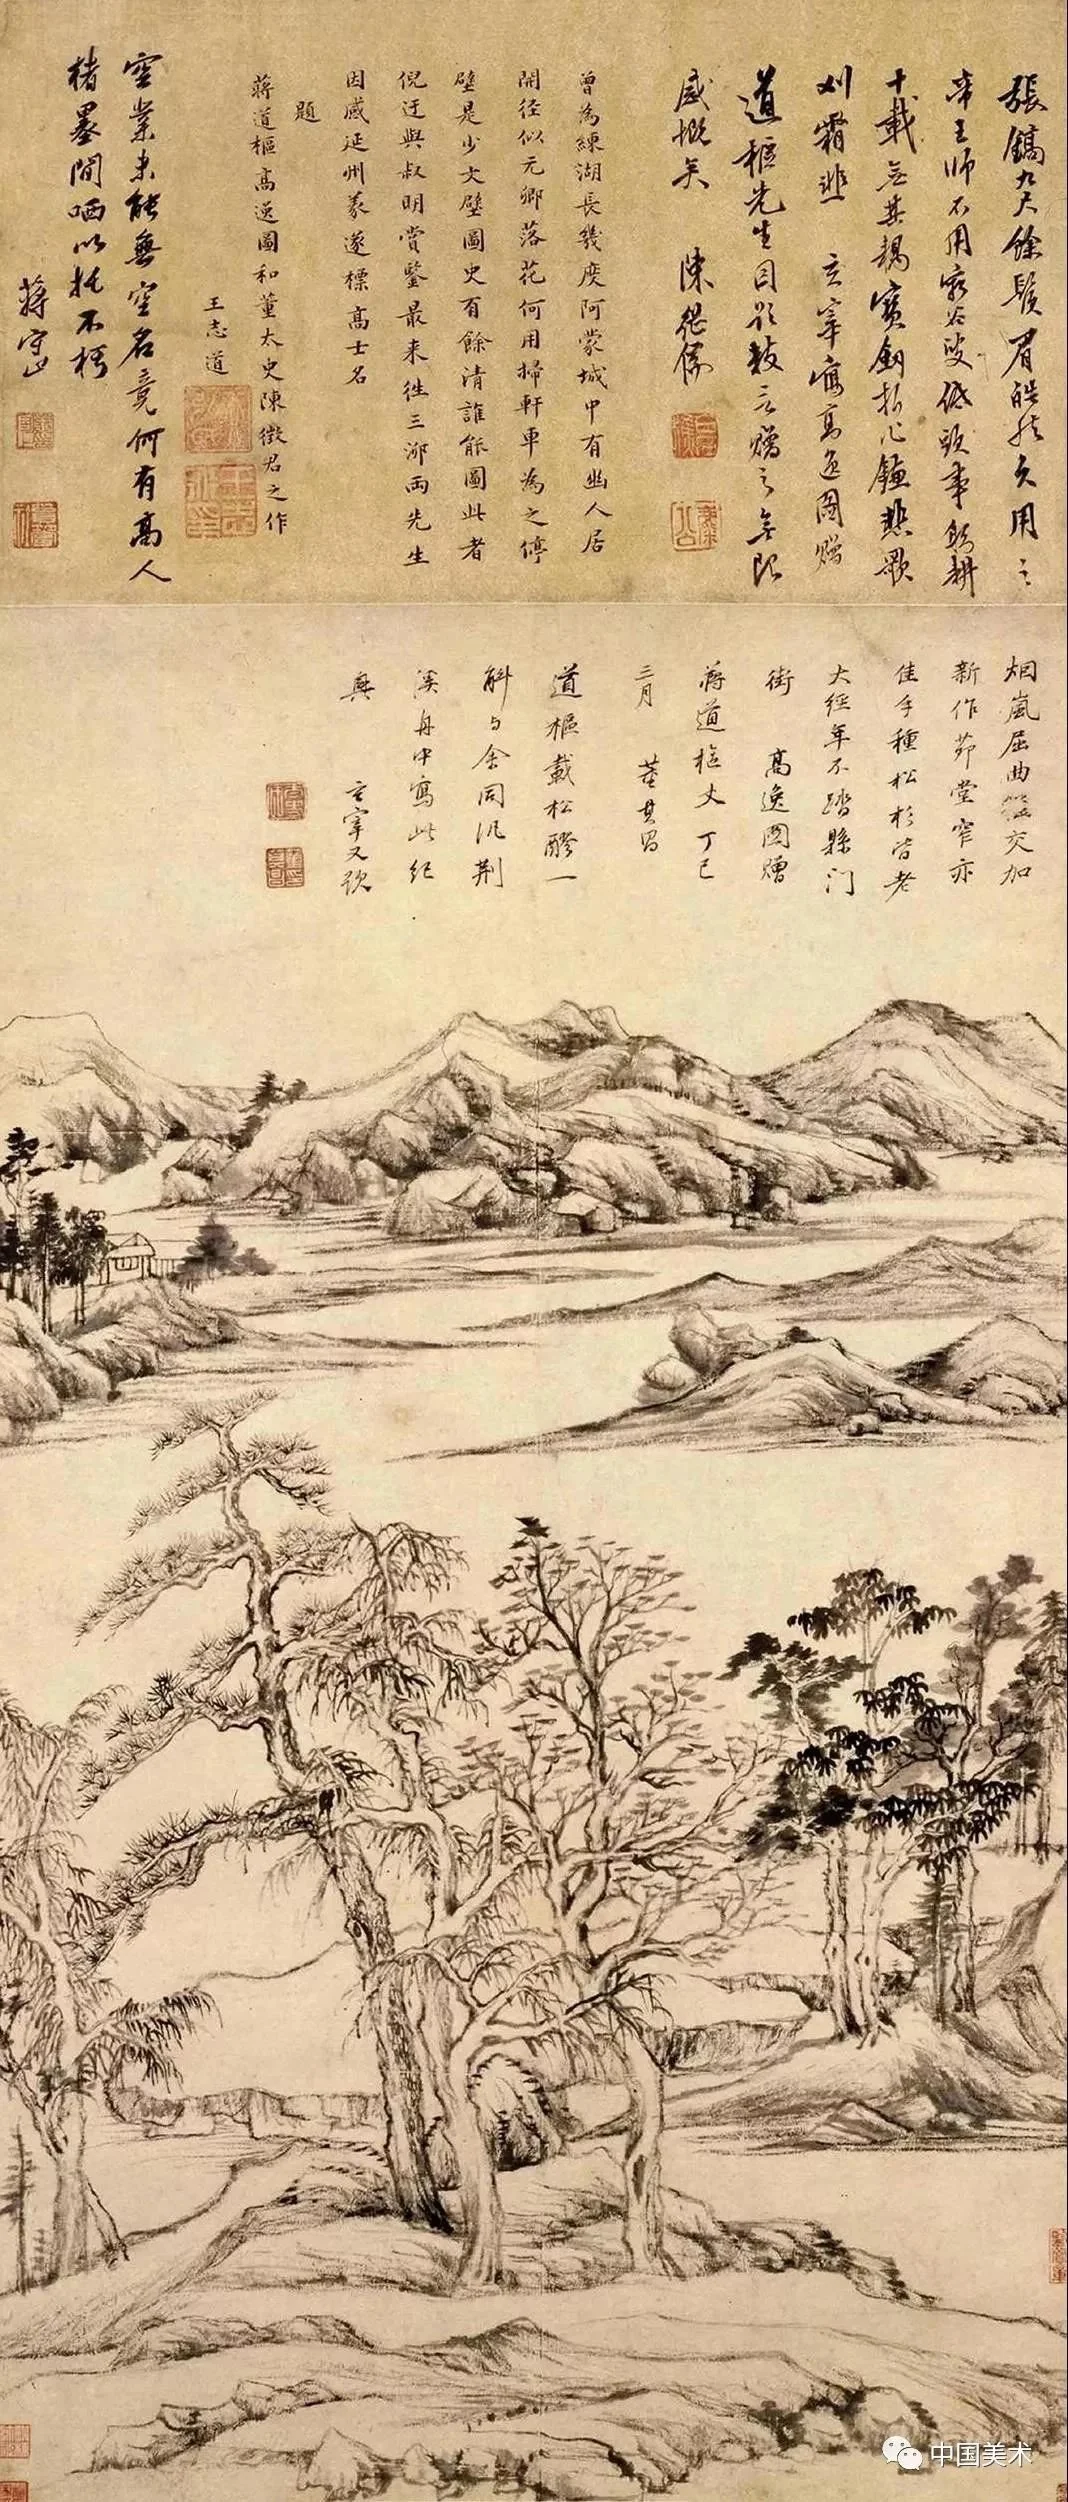 張鎬九尺餘鬚眉皓於久用之
帝王師不用窮谷叟低頭事躬耕
十載無其耦寶劍折心鐮悲歌
刈霜韭 玄宰寫高逸圖贈
道樞先生因題數言贈之無限
感慨矣 陳繼儒
曾為練湖長幾度阿蒙城中有幽人居
開徑似元卿落花何用掃軒車為之停
壁是少文壁圖史有餘清誰能圖此者
倪迂與叔明賞鑒最来往三泖兩先生
因感延州羲遂標高士名
題
蔣道樞高逸圖和董太史陳徵君之作
王志道
空業未能無空名竟何有高人
楮墨間哂以托不朽
蔣守止
烟嵐屈曲徑交加
新作茆堂窄亦
佳手種松杉皆老
大經年不踏縣門
街 高逸圖贈
蔣道樞丈 丁巳
三月 董其昌
道樞載松醪一
斛与余同汎荆
溪舟中寫此紀
興 玄宰又題
中国美术